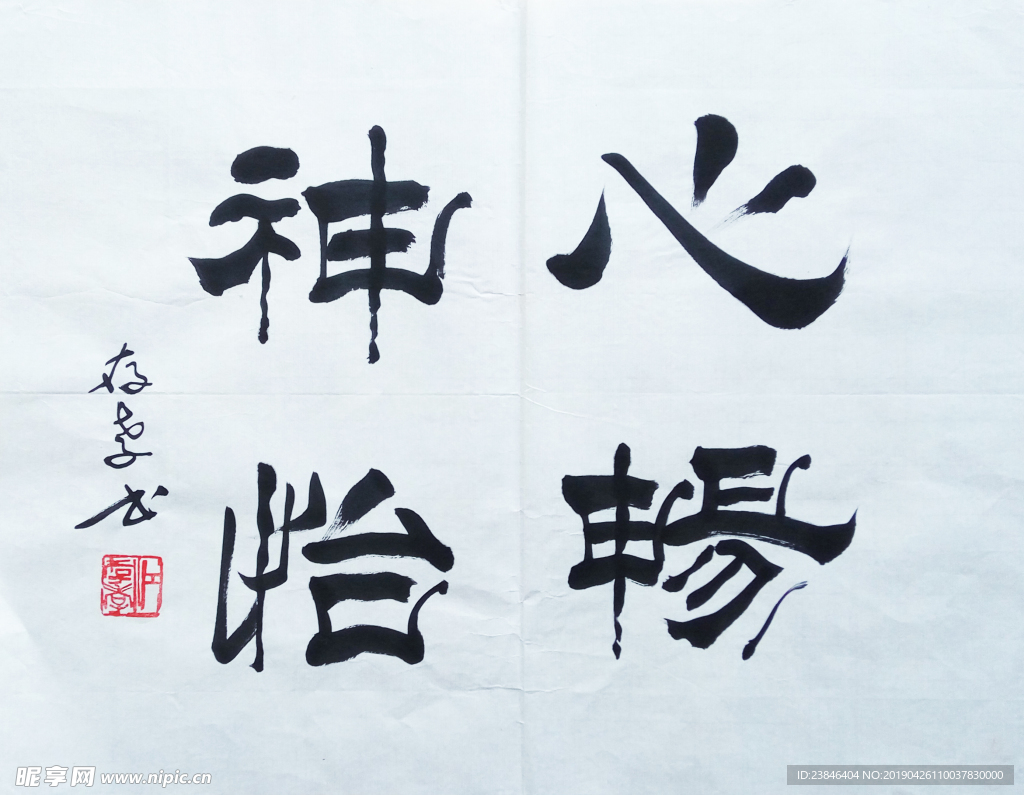 心暢
神怡
存孝书
昵享网 www.nipic.cn
ID:23846404 NO:20190426110037830000